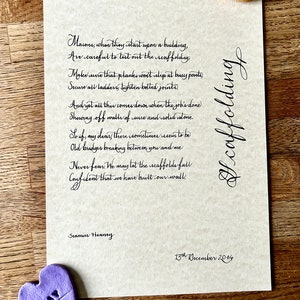 Scaffolding
Masons, when they start upon a building,
Are careful to test out the scaffolding;
Make sure that planks won't slip at busy points,
Secure all ladders, tighten bolted joints.
And yet all this comes down when the job's done
Showing off walls of sure and solid stone.
So if, my dear, there sometimes seem to be
Old bridges breaking between you and me
Never fear. We may let the scaffolds fall
Confident that we have built our wall.
Seamus Heaney
13th December 2014